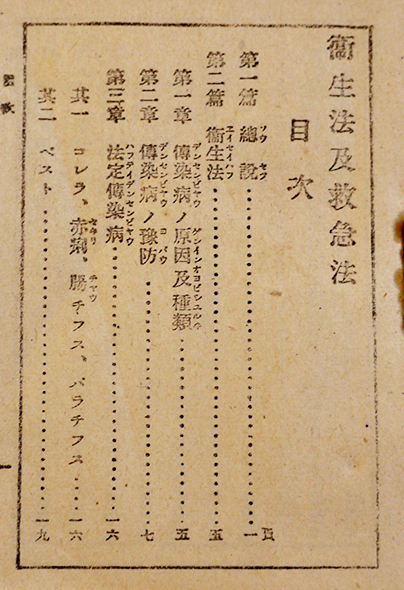 衞生法及救急法
目次
頁
第一篇 總說 一
第二篇 衞生法 五
第一章 傳染病ノ原因及種類 五
第二章 傳染病ノ豫防 七
第三章 法定傳染病 一六
其一 コレラ、赤痢、腸チフス、パラチフス 一六
其二 ペスト 一九
目次
一